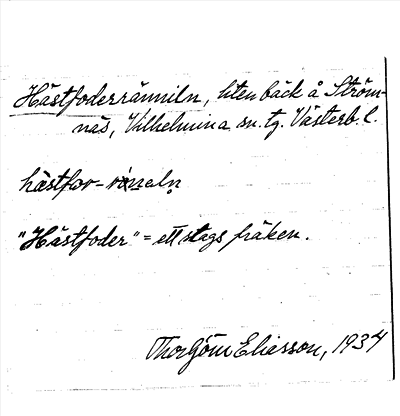 Hästfoderränniln, liten bäck å Ström-
näs, Vilhelmina sn. tg. Västerb. l.
hästfor-röneln
"Hästfoder" = ett slags fräken.
Eliasson, 1934